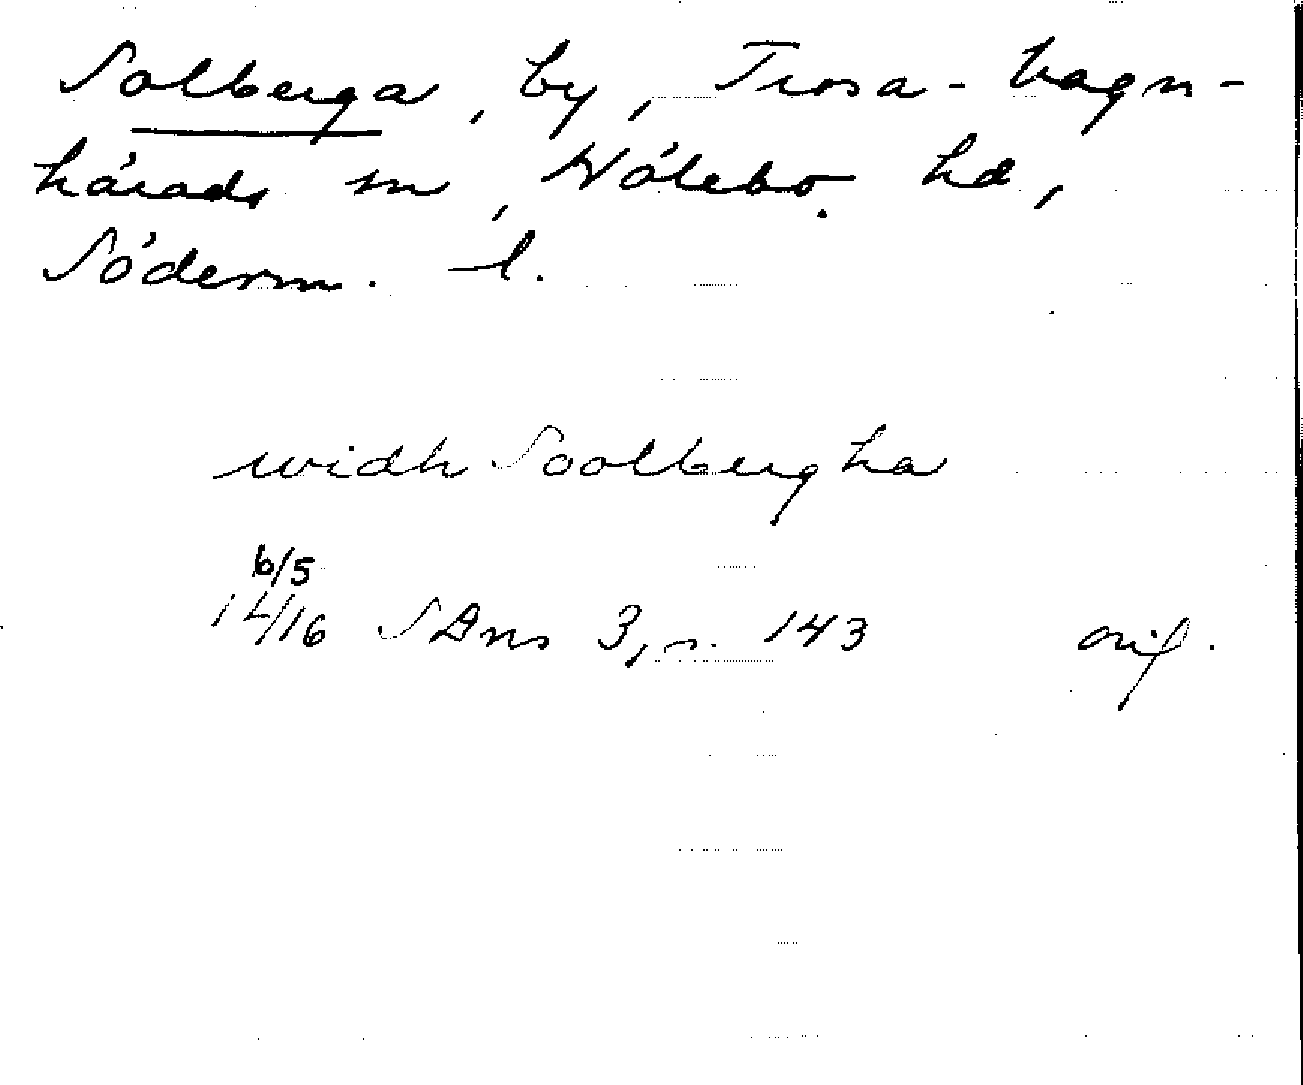 Solberga, by, Trosa-Vagn-
härads sn, Hölebo hd,
Söderm. l.
widh Soolbergha
6/5
1416 SDns 3, s. 143 orig.